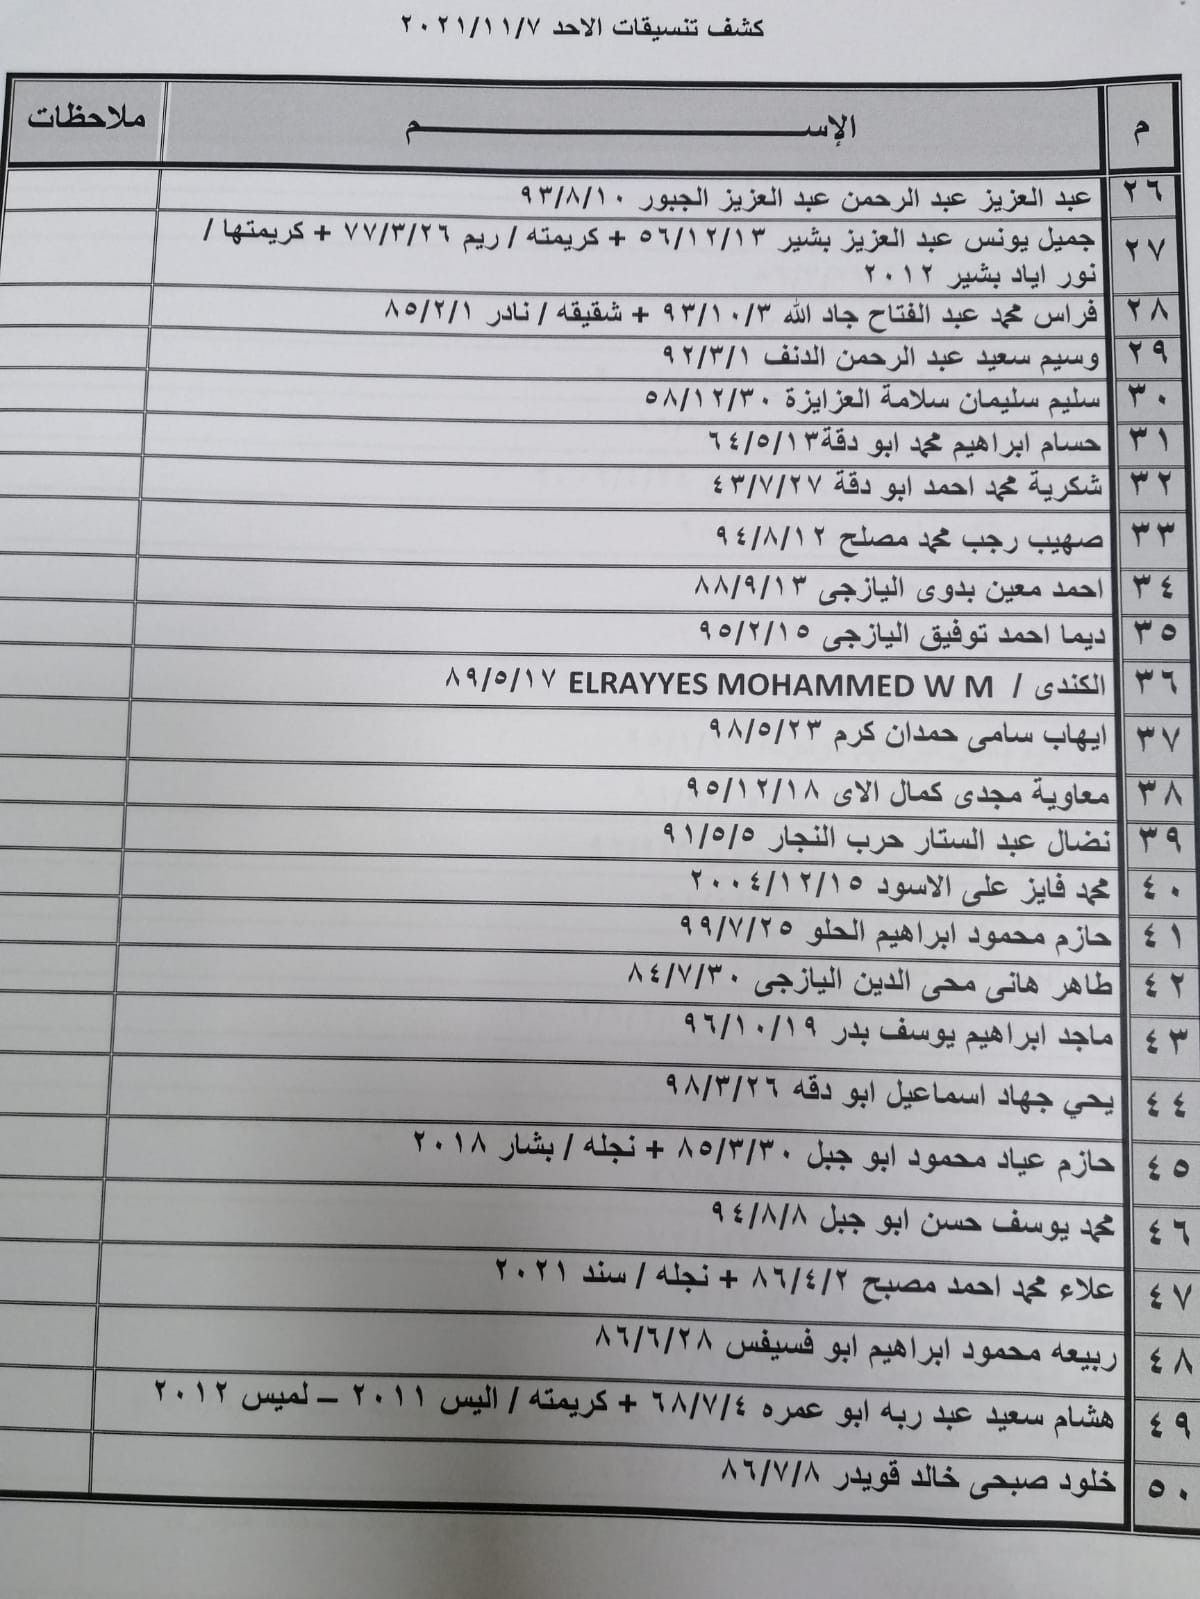 كشف تنسيقات الاحد ٢٠٢١/١١/٧
م الإســـــــــــم ملاحظات
٢٦ عبد العزيز عبد الرحمن عبد العزيز الجبور ٩٣/٨/١٠
٢٧ جميل يونس عبد العزيز بشير ٥٦/١٢/١٣ + كريمته / ريم ٧٧/٣/٢٦ + كريمتها /
نور اياد بشير ٢٠١٢
٢٨ فراس محمد عبد الفتاح جاد الله ٩٣/١٠/٣ + شقيقه / نادر ٨٥/٢/١
٢٩ وسيم سعيد عبد الرحمن الدنف ٩٢/٣/١
٣٠ سليم سليمان سلامة العزايزة ٥٨/١٢/٣٠
٣١ حسام ابراهيم محمد ابو دقة٦٤/٥/١٣
٣٢ شكرية محمد احمد ابو دقة ٤٣/٧/٢٧
٣٣ صهيب رجب محمد مصلح ٩٤/٨/١٢
٣٤ احمد معين بدوى اليازجى ٨٨/٩/١٣
٣٥ ديما احمد توفيق اليازجى ٩٥/٢/١٥
٣٦ الكندى / ELRAYYES MOHAMMED W M ٨٩/٥/١٧
٣٧ ايهاب سامى حمدان كرم ٩٨/٥/٢٣
٣٨ معاوية مجدى كمال الاى ٩٥/١٢/١٨
٣٩ نضال عبد الستار حرب النجار ٩١/٥/٥
٤٠ محمد فايز على الاسود ٢٠٠٤/١٢/١٥
٤١ حازم محمود ابراهيم الحلو ٩٩/٧/٢٥
٤٢ طاهر هانى محى الدين اليازجى ٨٤/٧/٣٠
٤٣ ماجد ابراهيم يوسف بدر ٩٦/١٠/١٩
٤٤ يحي جهاد اسماعيل ابو دقه ٩٨/٣/٢٦
٤٥ حازم عياد محمود ابو جبل ٨٥/٣/٣٠ + نجله / بشار ٢٠١٨
٤٦ محمد يوسف حسن ابو جبل ٩٤/٨/٨
٤٧ علاء محمد احمد مصبح ٨٦/٤/٢ + نجله / سند ٢٠٢١
٤٨ ربيعه محمود ابراهيم ابو فسيفس ٨٦/٦/٢٨
٤٩ هشام سعيد عبد ربه ابو عمره ٦٨/٧/٤ + كريمته / اليس ٢٠١١ – لميس ٢٠١٢
٥٠ خلود صبحى خالد قويدر ٨٦/٧/٨